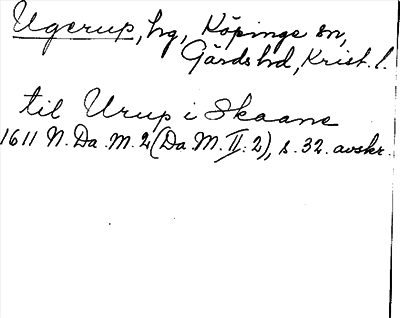 Ugerup, hg, Köpinge sn,
Gärds hd, Krist. l.
til Urup i Skaane
1611 N. Da. M. 2 (Da M. II: 2), s. 32. avskr.